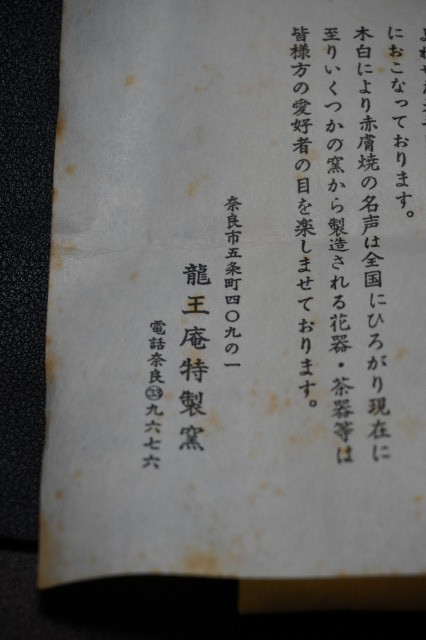 におこなっております。
木白により赤膚焼の名声は全国にひろがり現在に
至りいくつかの窯から製造される花器・茶器等は
皆様方の愛好者の目を楽しませております。
奈良市五条町四〇九の一
龍王庵特製窯
電話奈良㉝九六七六